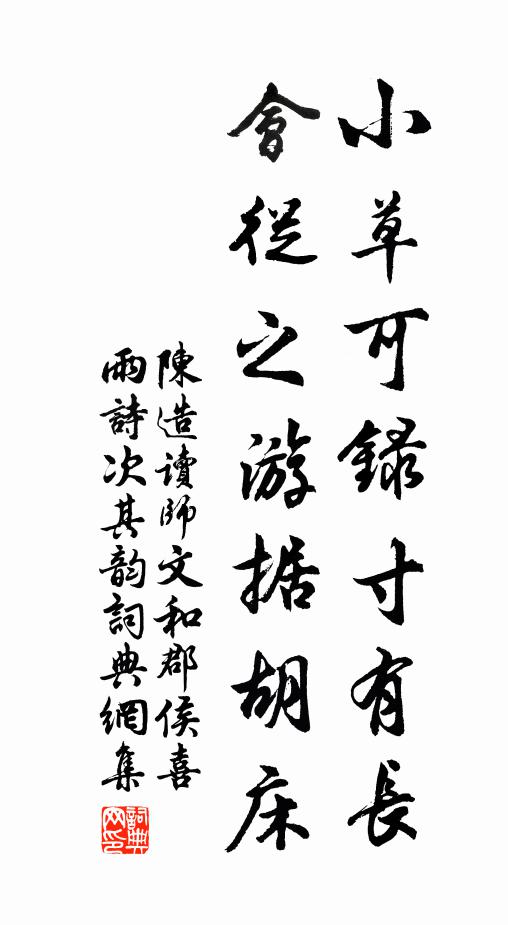 小草可錄寸有長
會從之游据胡床
陳造讀師文和郡侯喜
雨詩次其韵詞典網集
詞典
网印